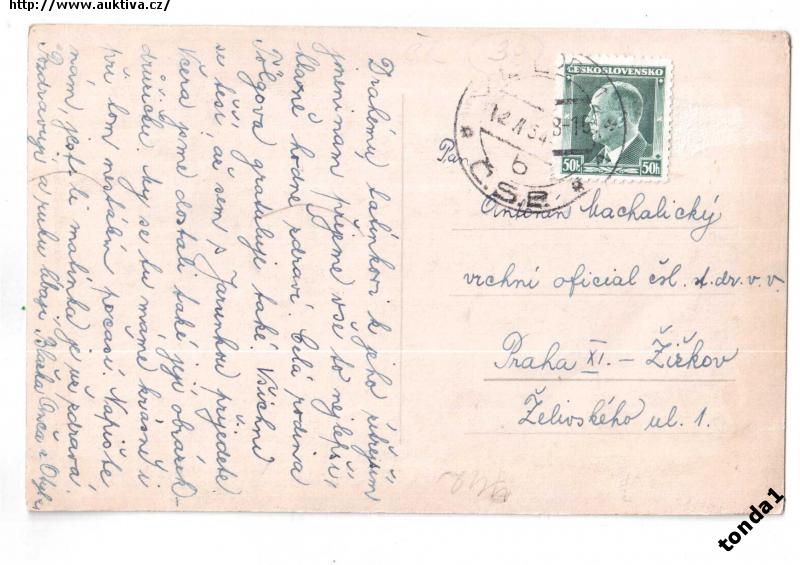 http://www.auktiva.cz/
Drahému tatínkovi k jeho zítřejším
jmeninám přejeme vše to nejlepší,
hlavně hodně zdraví. Celá rodina
Tölgova gratuluje také. Všichni
se těší, až sem s Jarunkou přijedete
Včera jsme dostali také její obrázek-
My se tu máme krásně i
při tom nestálém počasí. Napište
nám, jestli maminka je už zdravá.
Pozdravují a ruku líbají Blažka
ČESKOSLOVENSKO
50h 50h
12. 34 8-15
b
Č.S.R.
Antonín Machalický
vrchní oficial čsl. st. dr. v. v.
Praha XI. – Žižkov
Želivského ul. 1.
tonda1